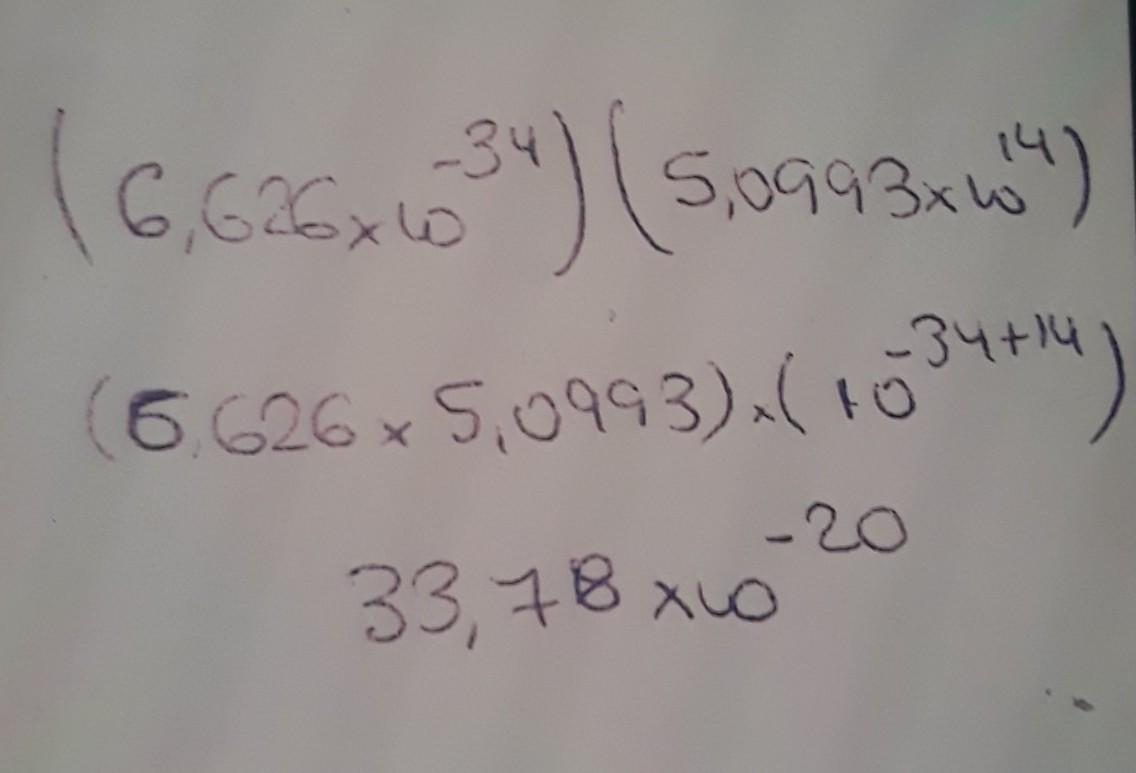 (6,626x10^-34)(5,0993x10^14)
(6,626x5,0993)x(10^-34+14)
33,78x10^-20